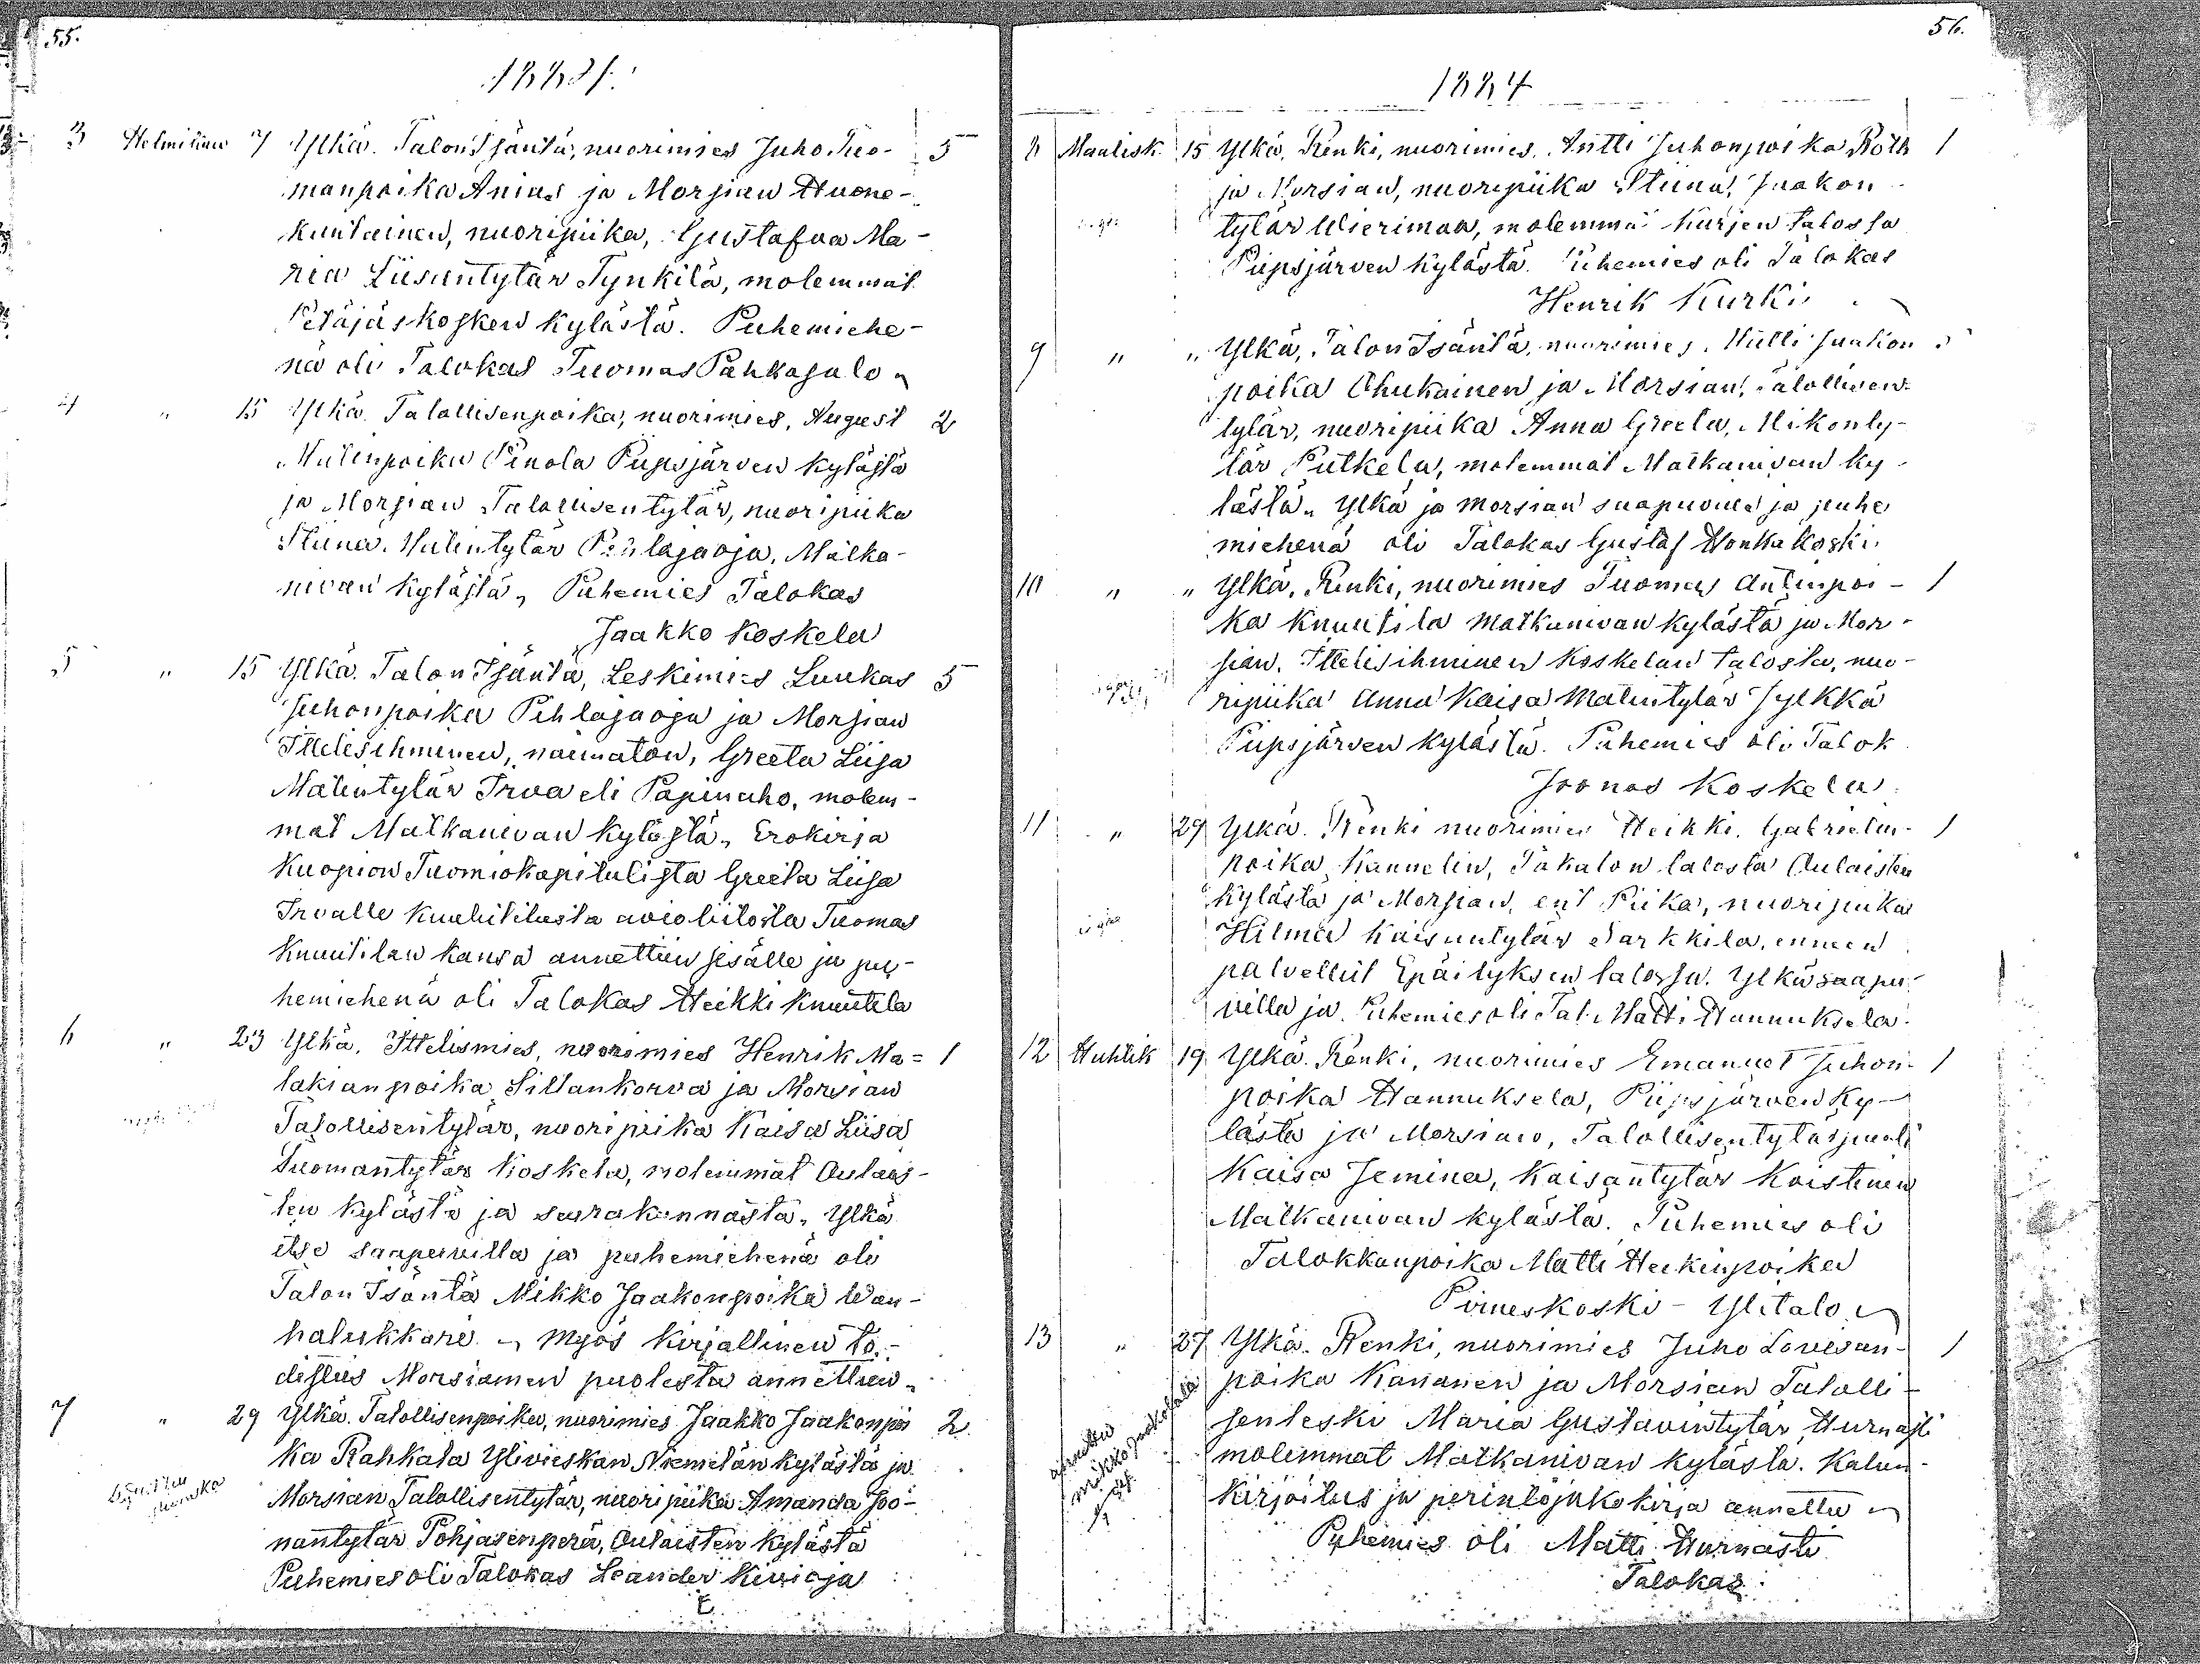 55.
1884.
3 Helmikuu 7 Ylkä. Talon Isäntä, nuorimies Juho Tuo- 5
manpoika Anias ja Morsian Huone-
kuntainen, nuoripiika, Gustafva Ma-
ria Liisantytär Tynkilä, molemmat
Petäjäskosken kylästä. Puhemiehe-
nä oli Talokas Tuomas Pahkasalo
4 " 15 Ylkä. Talollisenpoika, nuorimies, August 2
Matinpoika Pinola Piipsjärven kylästä
ja Morsian Talollisentytär, nuoripiika
Stiina Matintytär Pihlajaoja, Matka-
nivan kylästä, Puhemies Talokas
Jaakko Koskela
5 " 15 Ylkä. Talon Isäntä, Leskimies Luukas 5
Juhonpoika Pihlajaoja ja Morsian
Ittelisihminen, naimaton, Greeta Liisa
Matintytär Irva eli Papinaho, molem-
mat Matkanivan kylästä, Erokirja
Kuopion Tuomiokapitulista Greeta Liisa
Irvalle kuulutetusta avioliitosta Tuomas
Knuutilan kansa annettiin sisälle ja pu-
hemiehenä oli Talokas Heikki Knuutila
6 " 23 Ylkä. Ittelismies, nuorimies Henrik Ma= 1
lakianpoika Sillankorva ja Morsian
Talollisentytär, nuoripiika Kaisa Liisa
Tuomantytär Koskela, molemmat Oulais-
ten kylästä ja seurakunnasta, Ylkä
itse saapuvilla ja puhemiehenä oli
Talon Isäntä Mikko Jaakonpoika Wan-
halukkari Myös kirjallinen to-
distus Morsiamen puolesta annettiin
7 " 29 Ylkä. Talollisenpoika, nuorimies Jaakko Jaakonpoi 2
ka Rahkala Ylivieskan Niemelän kylästä ja
Morsian Talollisentytär, nuoripiika Amanda Joo-
nantytär Pohjasenperä, Oulaisten kylästä
Puhemies oli Talokas Leander Kivioja
56.
1884
8 Maalisk. 15 Ylkä, Renki, nuorimies, Antti Juhonpoika Roth 1
ja Morsian, nuoripiika Stiina Jaakon
tytär Wierimaa, molemmat Kurjen talossa
Piipsjärven kylästä. Puhemies oli Talokas
Henrik Kurki
9 " " Ylkä, Talon Isäntä, nuorimies, Matti Jaakon
poika Ohukainen ja Morsian, Talollisen-
tytär, nuoripiika Anna Greeta, Mikonty-
tär Putkela, molemmat Matkanivan ky-
lästä. Ylkä ja morsian saapuvilla ja puhe
miehenä oli Talokas Gustaf Honkakoski
10 " " Ylkä, Renki, nuorimies Tuomas Antinpoi- 1
ka Knuutila Matkanivan kylästä ja Mor-
sian, Ittelisihminen Koskelan talosta, nuo-
ripiika Anna Kaisa Matintytär Jylkkä
Piipsjärven kylästä. Puhemies oli Talok
Joonas Koskela
11 " 29 Ylkä. Renki nuorimies Heikki. Gabrielin- 1
poika Kannelin, Jakalon talosta Oulaisten
kylästä ja Morsian, ent Piika, nuoripiika
Hilma Kaisantytär Sarkkila, ennen
palvellut Epäilyksen talossa. Ylkä saapu-
villa ja Puhemies oli Tal. Matti Hannuksela.
12 Huhtik 19 Ylkä. Renki, nuorimies Emanuel Juhon- 1
poika Hannuksela, Piipsjärven ky-
lästä ja Morsian, Talollisentytärpuoli
Kaisa Jemina, Kaisantytär Koistinen
Matkanivan kylästä. Puhemies oli
Talokkanpoika Matti Heikinpoika
Pirneskoski - Ylitalo
13 " 27 Ylkä. Renki, nuorimies Juho Lovisan- 1
poika Kananen ja Morsian Talolli-
senleski Maria Gustavintytär Hurnasti
molemmat Matkanivan kylästä. Kalun-
kirjoitus ja perintöjakokirja annettu
Puhemies oli Matti Hurnasti
Talokas